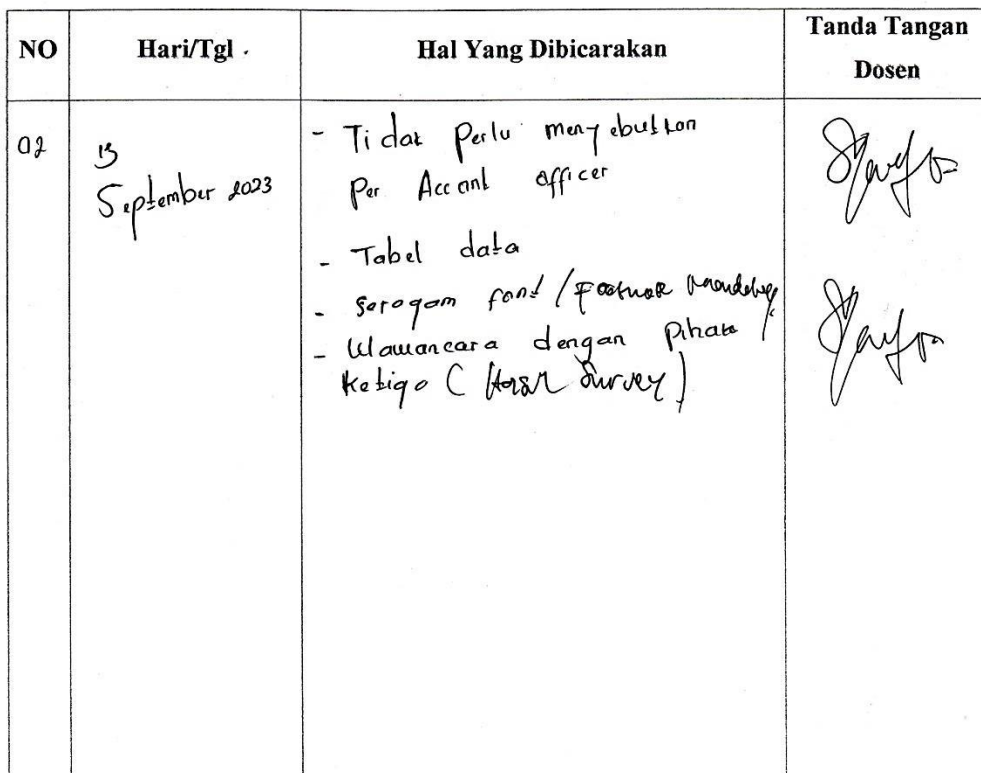 NO Hari/Tgl . Hal Yang Dibicarakan Tanda Tangan
Dosen
02
13
September 2023
- Tidak Perlu menyebutkan
Per Accant officer
- Tabel data
- Seragam font / Footnote
- Wawancara dengan Pihak
Ketiga ( Hasil Survey )